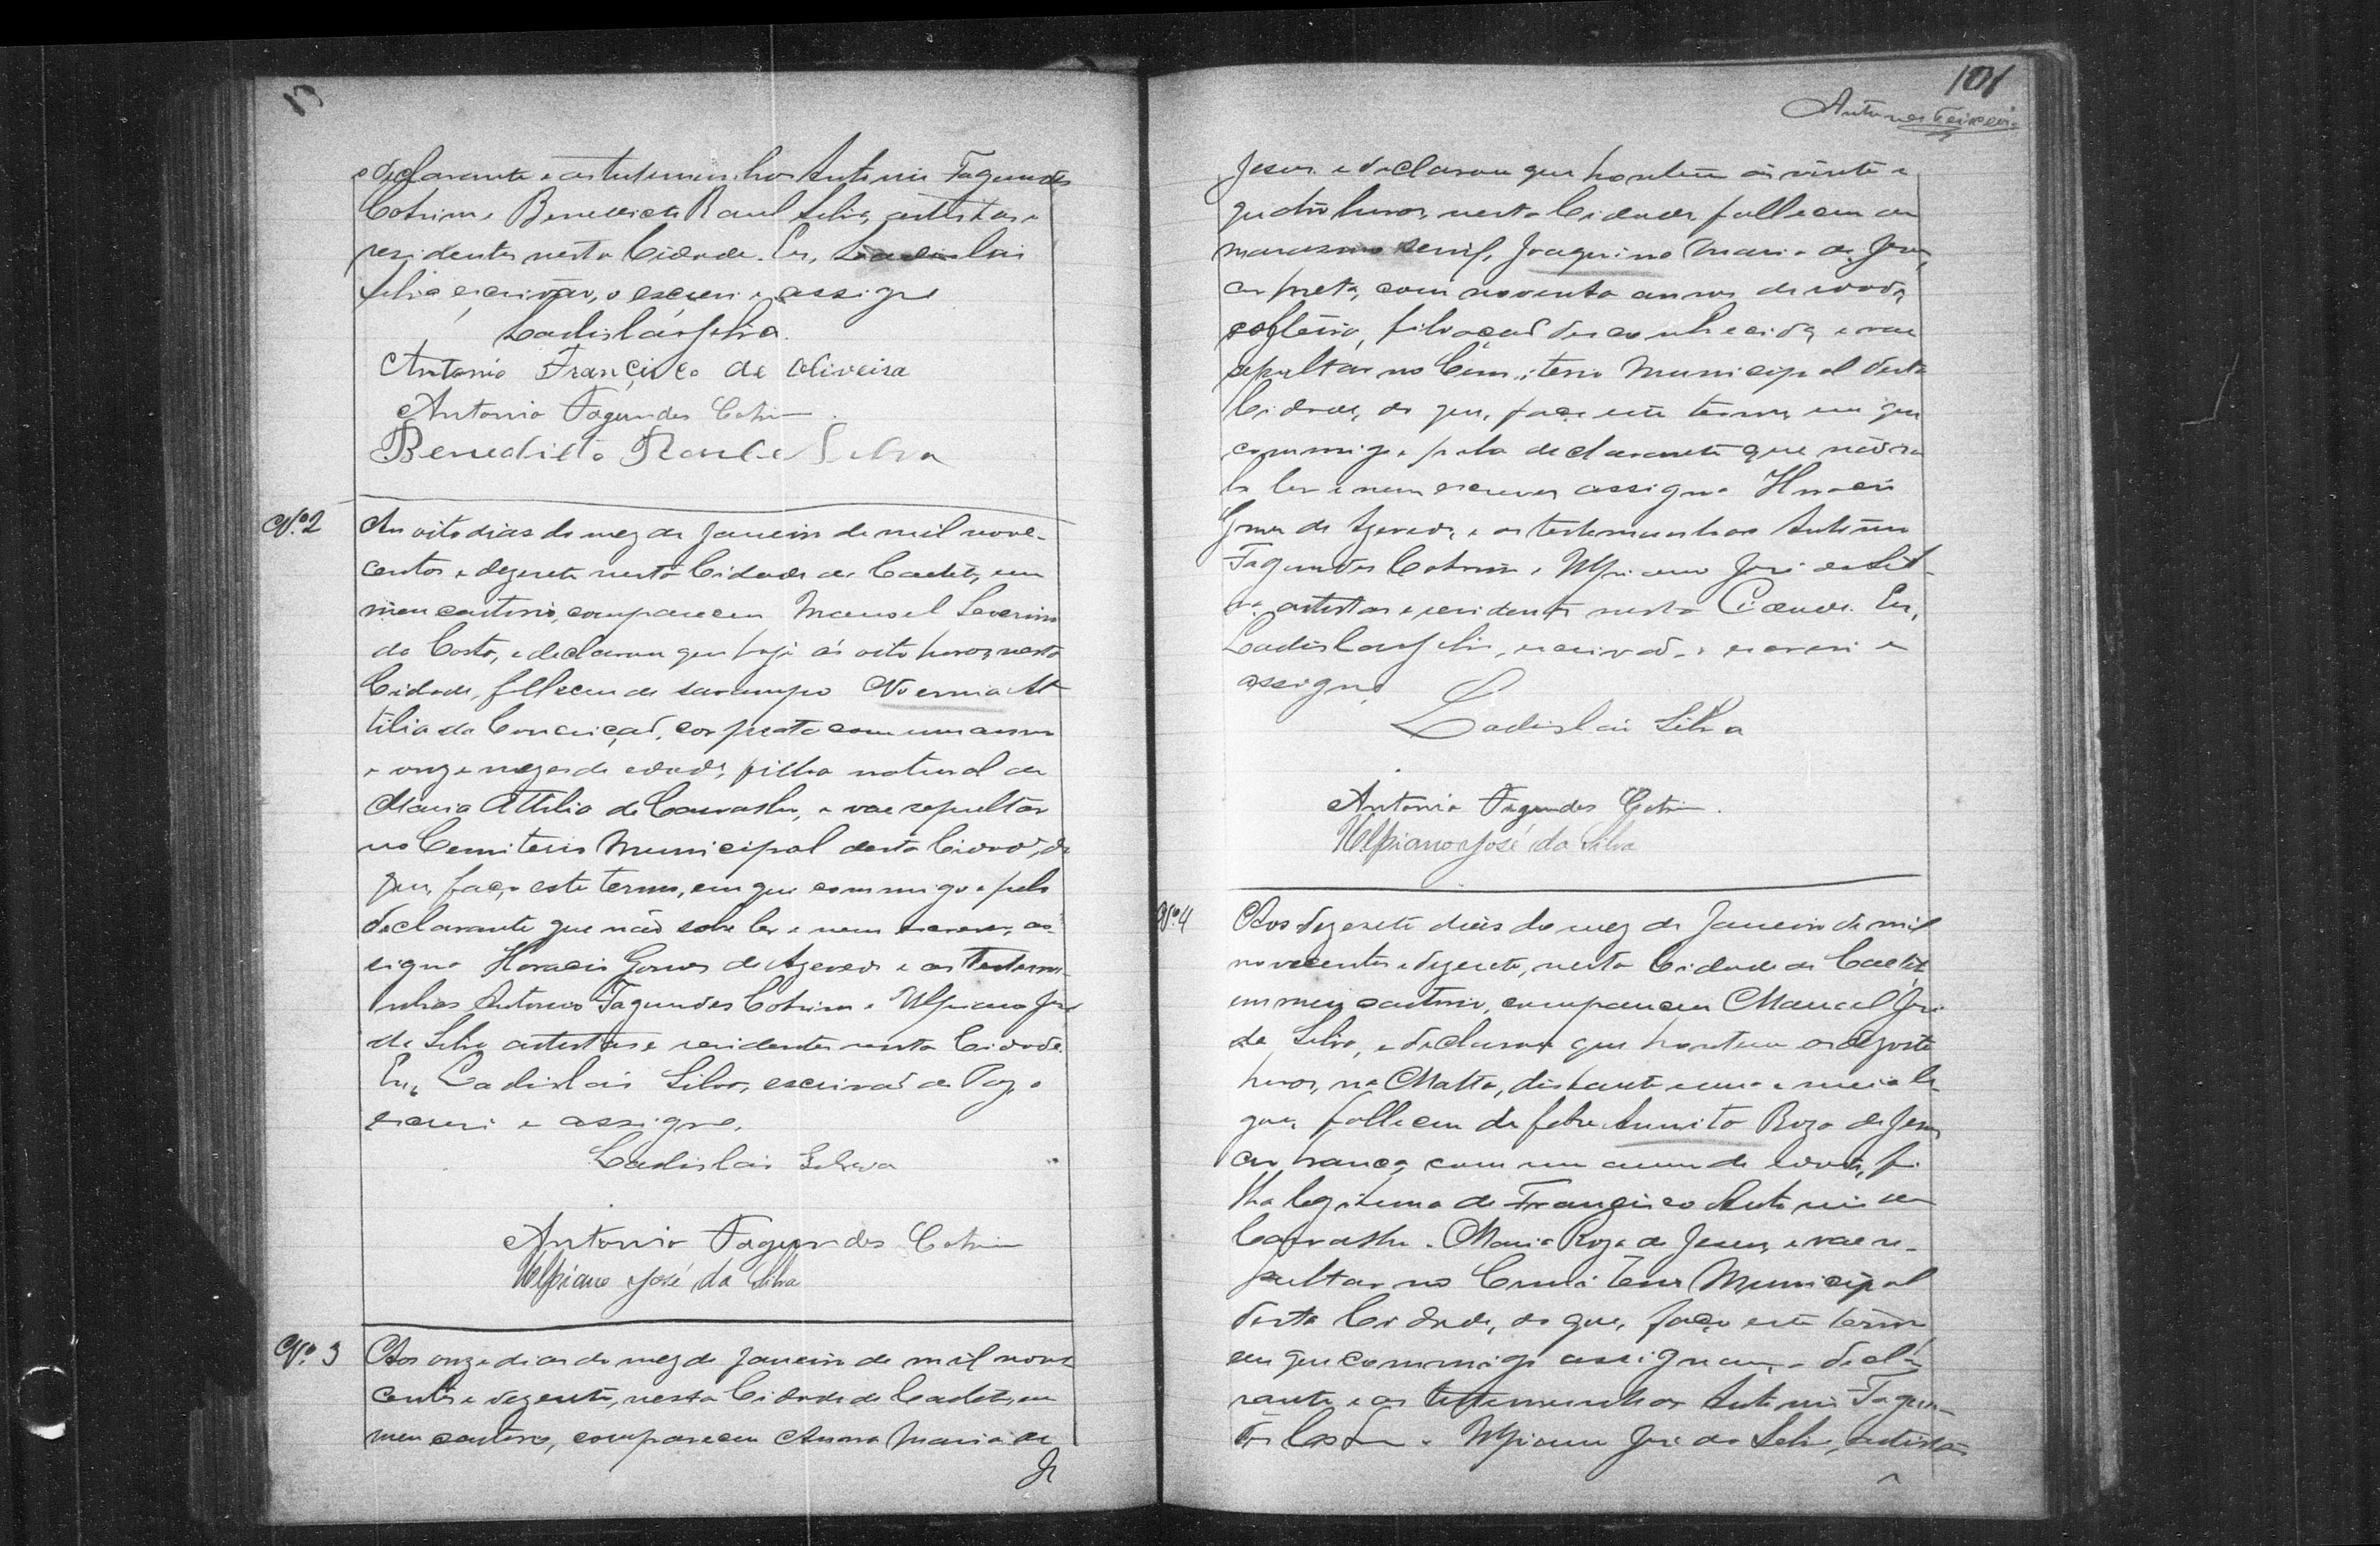 o declarante e as testemunhas Antonio Fagundes
Cotrim e Benedicto Raul Silva, artistas e
residentes nesta Cidade. Eu, Ladislau
Silva escrivão, o escrevi e assigno
Ladislau Silva.
Antonio Francisco de Oliveira
Antonio Fagundes Cotrim.
Benedicto Raul e Silva
Nº. 2
Aos oito dias do mez de Janeiro de mil nove-
centos e dezesete nesta Cidade de Caeteté, em
meu cartorio, compareceu Manoel Severino
da Costa, e declarou que hoje ás oito horas, nesta
Cidade, falleceu de sarampo Noemia At
tilia da Conceição, cor preta com um anno
e onze mezes de edade, filha natural de
Maria Attilia de Carvalho, e vae sepultar
no Cemiterio Municipal desta Cidade, do
que, faço este termo, em que commigo e pelo
declarante que não sabe ler e nem escrever, as-
signa Horacio Gomes de Azevedo e as testemu-
nhas Antonio Fagundes Cotrim e Ulpiano José
da Silva artistas e residentes nesta Cidade.
Eu, Ladislau Silva, escrivão de Paz o
escrevi e assigno.
Ladislau Silva
Antonio Fagundes Cotrim
Ulpiano José da Silva
Nº. 3
Aos onze dias do mez de Janeiro de mil nove
centos e dezesete, nesta Cidade de Caeteté, em
meu cartorio, compareceu Anna Maria de
Je
101
Antunes Teixeira
Jesus e declarou que hontem ás vinte e
quatro horas, nesta Cidade, falleceu de
marasmo senil, Joaquina Maria de Jesus,
cor preta, com noventa annos de edade,
solteira, filiação desconhecida, e vae
sepultar no Cemiterio Municipal desta
Cidade, do que, faço este termo, em que
commigo e pela declarante que não sa
be ler e nem escrever assigna Horacio
Gomes de Azevedo, e as testemunhas Antonio
Fagundes Cotrim e Ulpiano José da Sil-
va artistas e residentes nesta Cidade. Eu,
Ladislau Silva, escrivão, o escrevi e
assigno
Ladislau Silva
Antonio Fagundes Cotrim.
Ulpiano José da Silva
Nº. 4
Aos dezesete dias do mez de Janeiro de mil
novecentos e dezesete, nesta Cidade de Caeteté
em meu cartorio, compareceu Manoel José
da Silva, e declarou que hontem as
horas, na Matta, distante uma e meia le-
gua, falleceu de febre Roza de Jesus
cor branca, com um anno de edade, fi
lha legitima de Francisco Antonio de
Carvalho e Maria Roza de Jesus, e vae se-
pultar no Cemiterio Municipal
desta Cidade, do que, faço este termo
em que commigo assignam, o decla
rante e as testemunhas Antonio Fagun-
des Cotrim e Ulpiano José da Silva, artistas